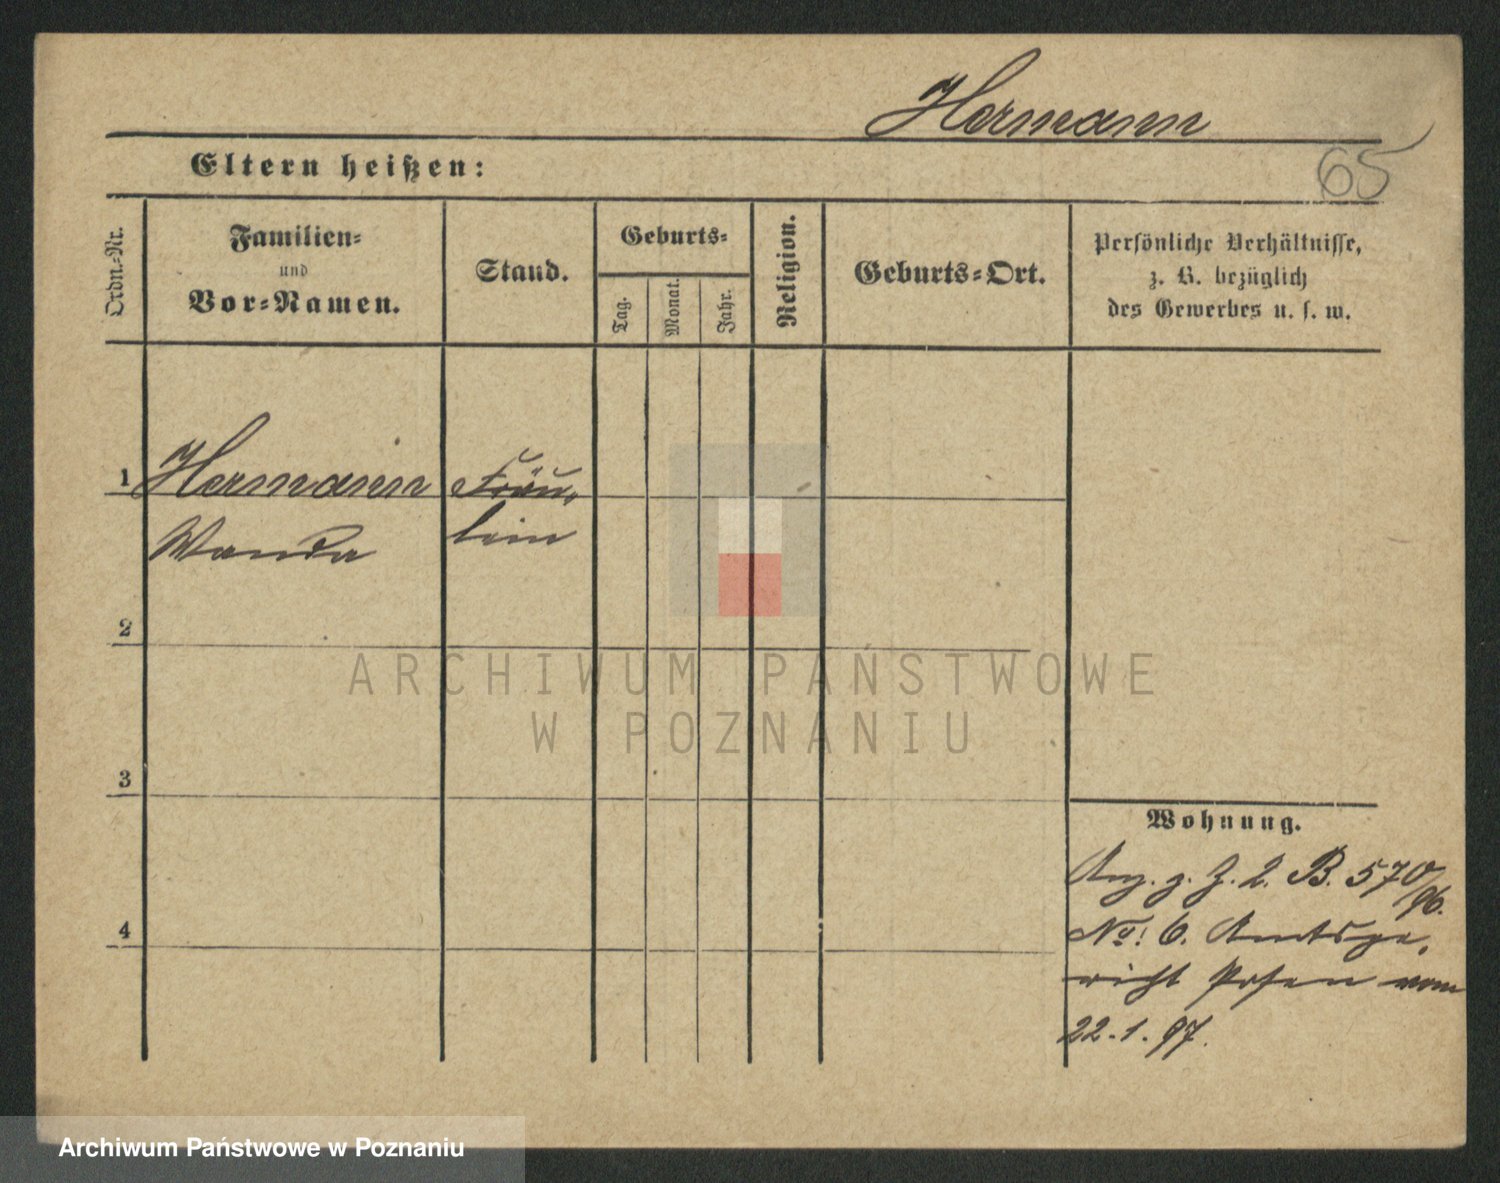 Hermann
65
Eltern heißen:
Ordn.-Nr.
Familien-
und
Vor-Namen.
Stand.
Geburts-
Tag.
Monat.
Jahr.
Religion.
Geburts-Ort.
Persönliche Verhältnisse,
z. B. bezüglich
des Gewerbes u. s. w.
1 Hermann Fräu-
Wanda lein
2
3
4
Wohnung.
z. J. 2. B. 570/96.
No. 6. Amtsge-
richt Posen vom
22.1.97.
ARCHIWUM PAŃSTWOWE
W POZNANIU
Archiwum Państwowe w Poznaniu